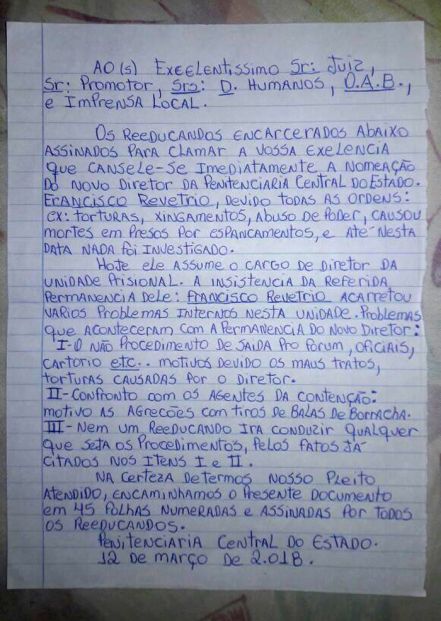 AO(s) EXEELENTISSIMO Sr: JUIZ,
Sr: PROMOTOR, Srs: D. HUMANOS, O.A.B.,
e IMPRENSA LOCAL.
OS REEDUCANDOS ENCARCERADOS ABAIXO
ASSINADOS PARA CLAMAR A VOSSA EXELENCIA
QUE CANSELE-SE IMEDIATAMENTE A NOMEAÇÃO
DO NOVO DIRETOR DA PENITENCIARIA CENTRAL DO ESTADO.
FRANCISCO REVETRIO, DEVIDO TODAS AS ORDENS:
EX: TORTURAS, XINGAMENTOS, ABUSO DE PODER, CAUSOU
MORTES EM PRESOS POR ESPANCAMENTOS, E ATÉ NESTA
DATA NADA FOI INVESTIGADO.
HOJE ELE ASSUME O CARGO DE DIRETOR DA
UNIDADE PRISIONAL. A INSISTENCIA DA REFERIDA
PERMANENCIA DELE: FRANCISCO REVETRIO ACARRETOU
VARIOS PROBLEMAS INTERNOS NESTA UNIDADE. PROBLEMAS
QUE ACONTECERAM COM A PERMANENCIA DO NOVO DIRETOR:
I-O NÃO PROCEDIMENTO DE SAIDA PRO FORUM, OFICIAIS,
CARTORIO etc.. MOTIVOS DEVIDO OS MAUS TRATOS,
TORTURAS CAUSADAS POR O DIRETOR.
II-CONFRONTO COM OS AGENTES DA CONTENÇÃO:
MOTIVO AS AGRECÕES COM TIROS DE BALAS DE BORRACHA.
III-NEM UM REEDUCANDO IRA CONDUZIR QUALQUER
QUE SEJA OS PROCEDIMENTOS, PELOS FATOS JÁ
CITADOS NOS ITENS I e II.
NA CERTEZA DE TERMOS NOSSO PLEITO
ATENDIDO, ENCAMINHAMOS O PRESENTE DOCUMENTO
EM 45 FOLHAS NUMERADAS E ASSINADAS POR TODOS
OS REEDUCANDOS.
PENITENCIARIA CENTRAL DO ESTADO.
12 DE MARÇO DE 2.018.